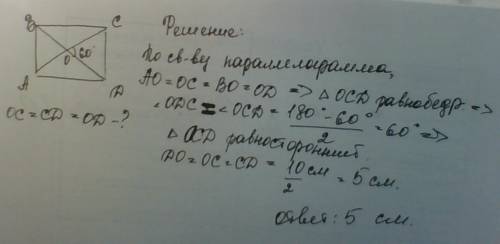 B
C
60°
O
A
D
OC = CD = OD - ?
Решение:
По св-ву параллелограмма,
AO = OC = BO = OD => △ OCD равнобедр =>
∠ODC = ∠OCD = 180° - 60° / 2 = 60° =>
△ OCD равносторонний.
DO = OC = CD = 10 см / 2 = 5 см.
ответ: 5 см.